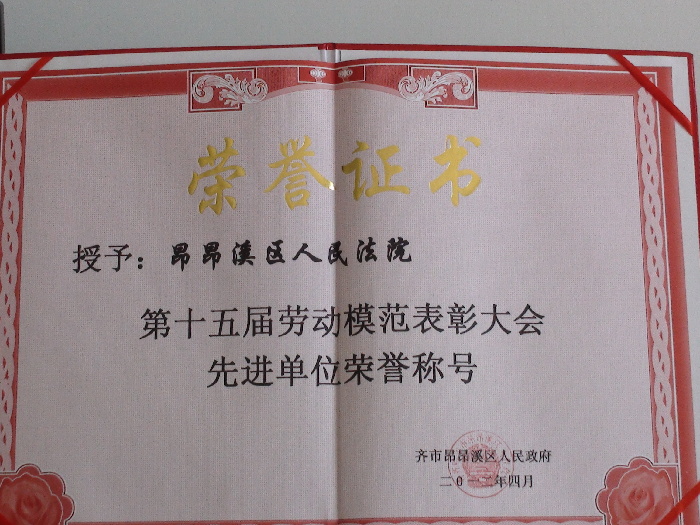 荣誉证书
授予：昂昂溪区人民法院
第十五届劳动模范表彰大会
先进单位荣誉称号
齐市昂昂溪区人民政府
二〇一二年四月